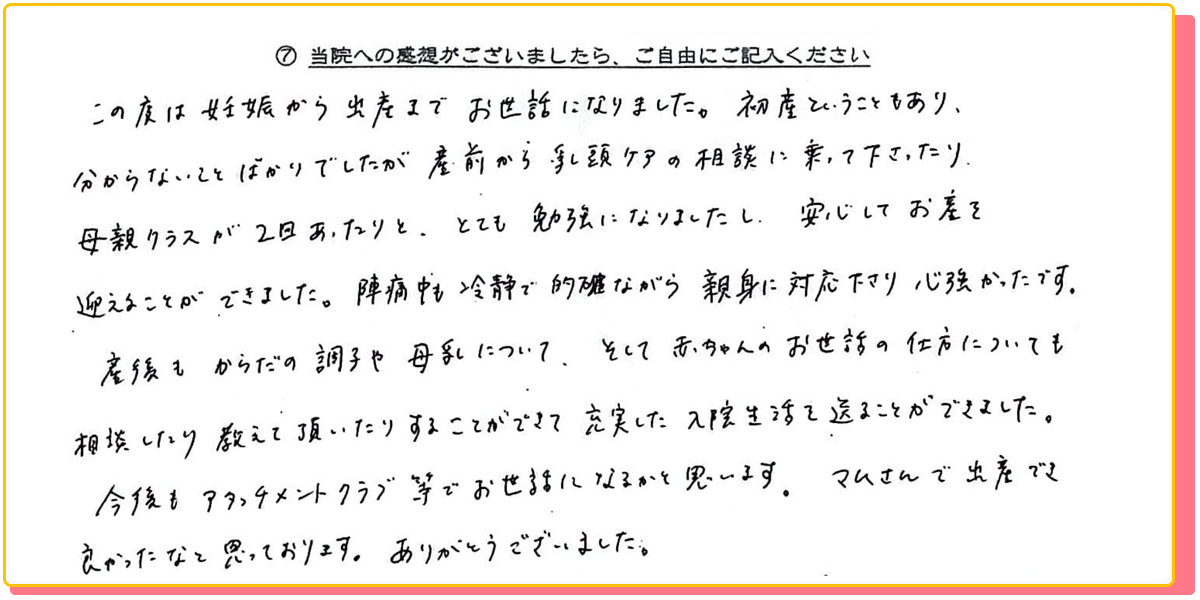 ⑦ 当院への感想がございましたら、ご自由にご記入ください
この度は妊娠から出産までお世話になりました。初産ということもあり、
分からないことばかりでしたが産前から乳頭ケアの相談に乗って下さったり、
母親クラスが2回あったりと、とても勉強になりましたし、安心してお産を
迎えることができました。陣痛中も冷静で的確ながら親身に対応下さり心強かったです。
産後もからだの調子や母乳について、そして赤ちゃんのお世話の仕方についても
相談したり教えて頂いたりすることができて充実した入院生活を送ることができました。
今後もアタッチメントクラブ等でお世話になるかと思います。マムさんで出産でき
良かったなと思っております。ありがとうございました。